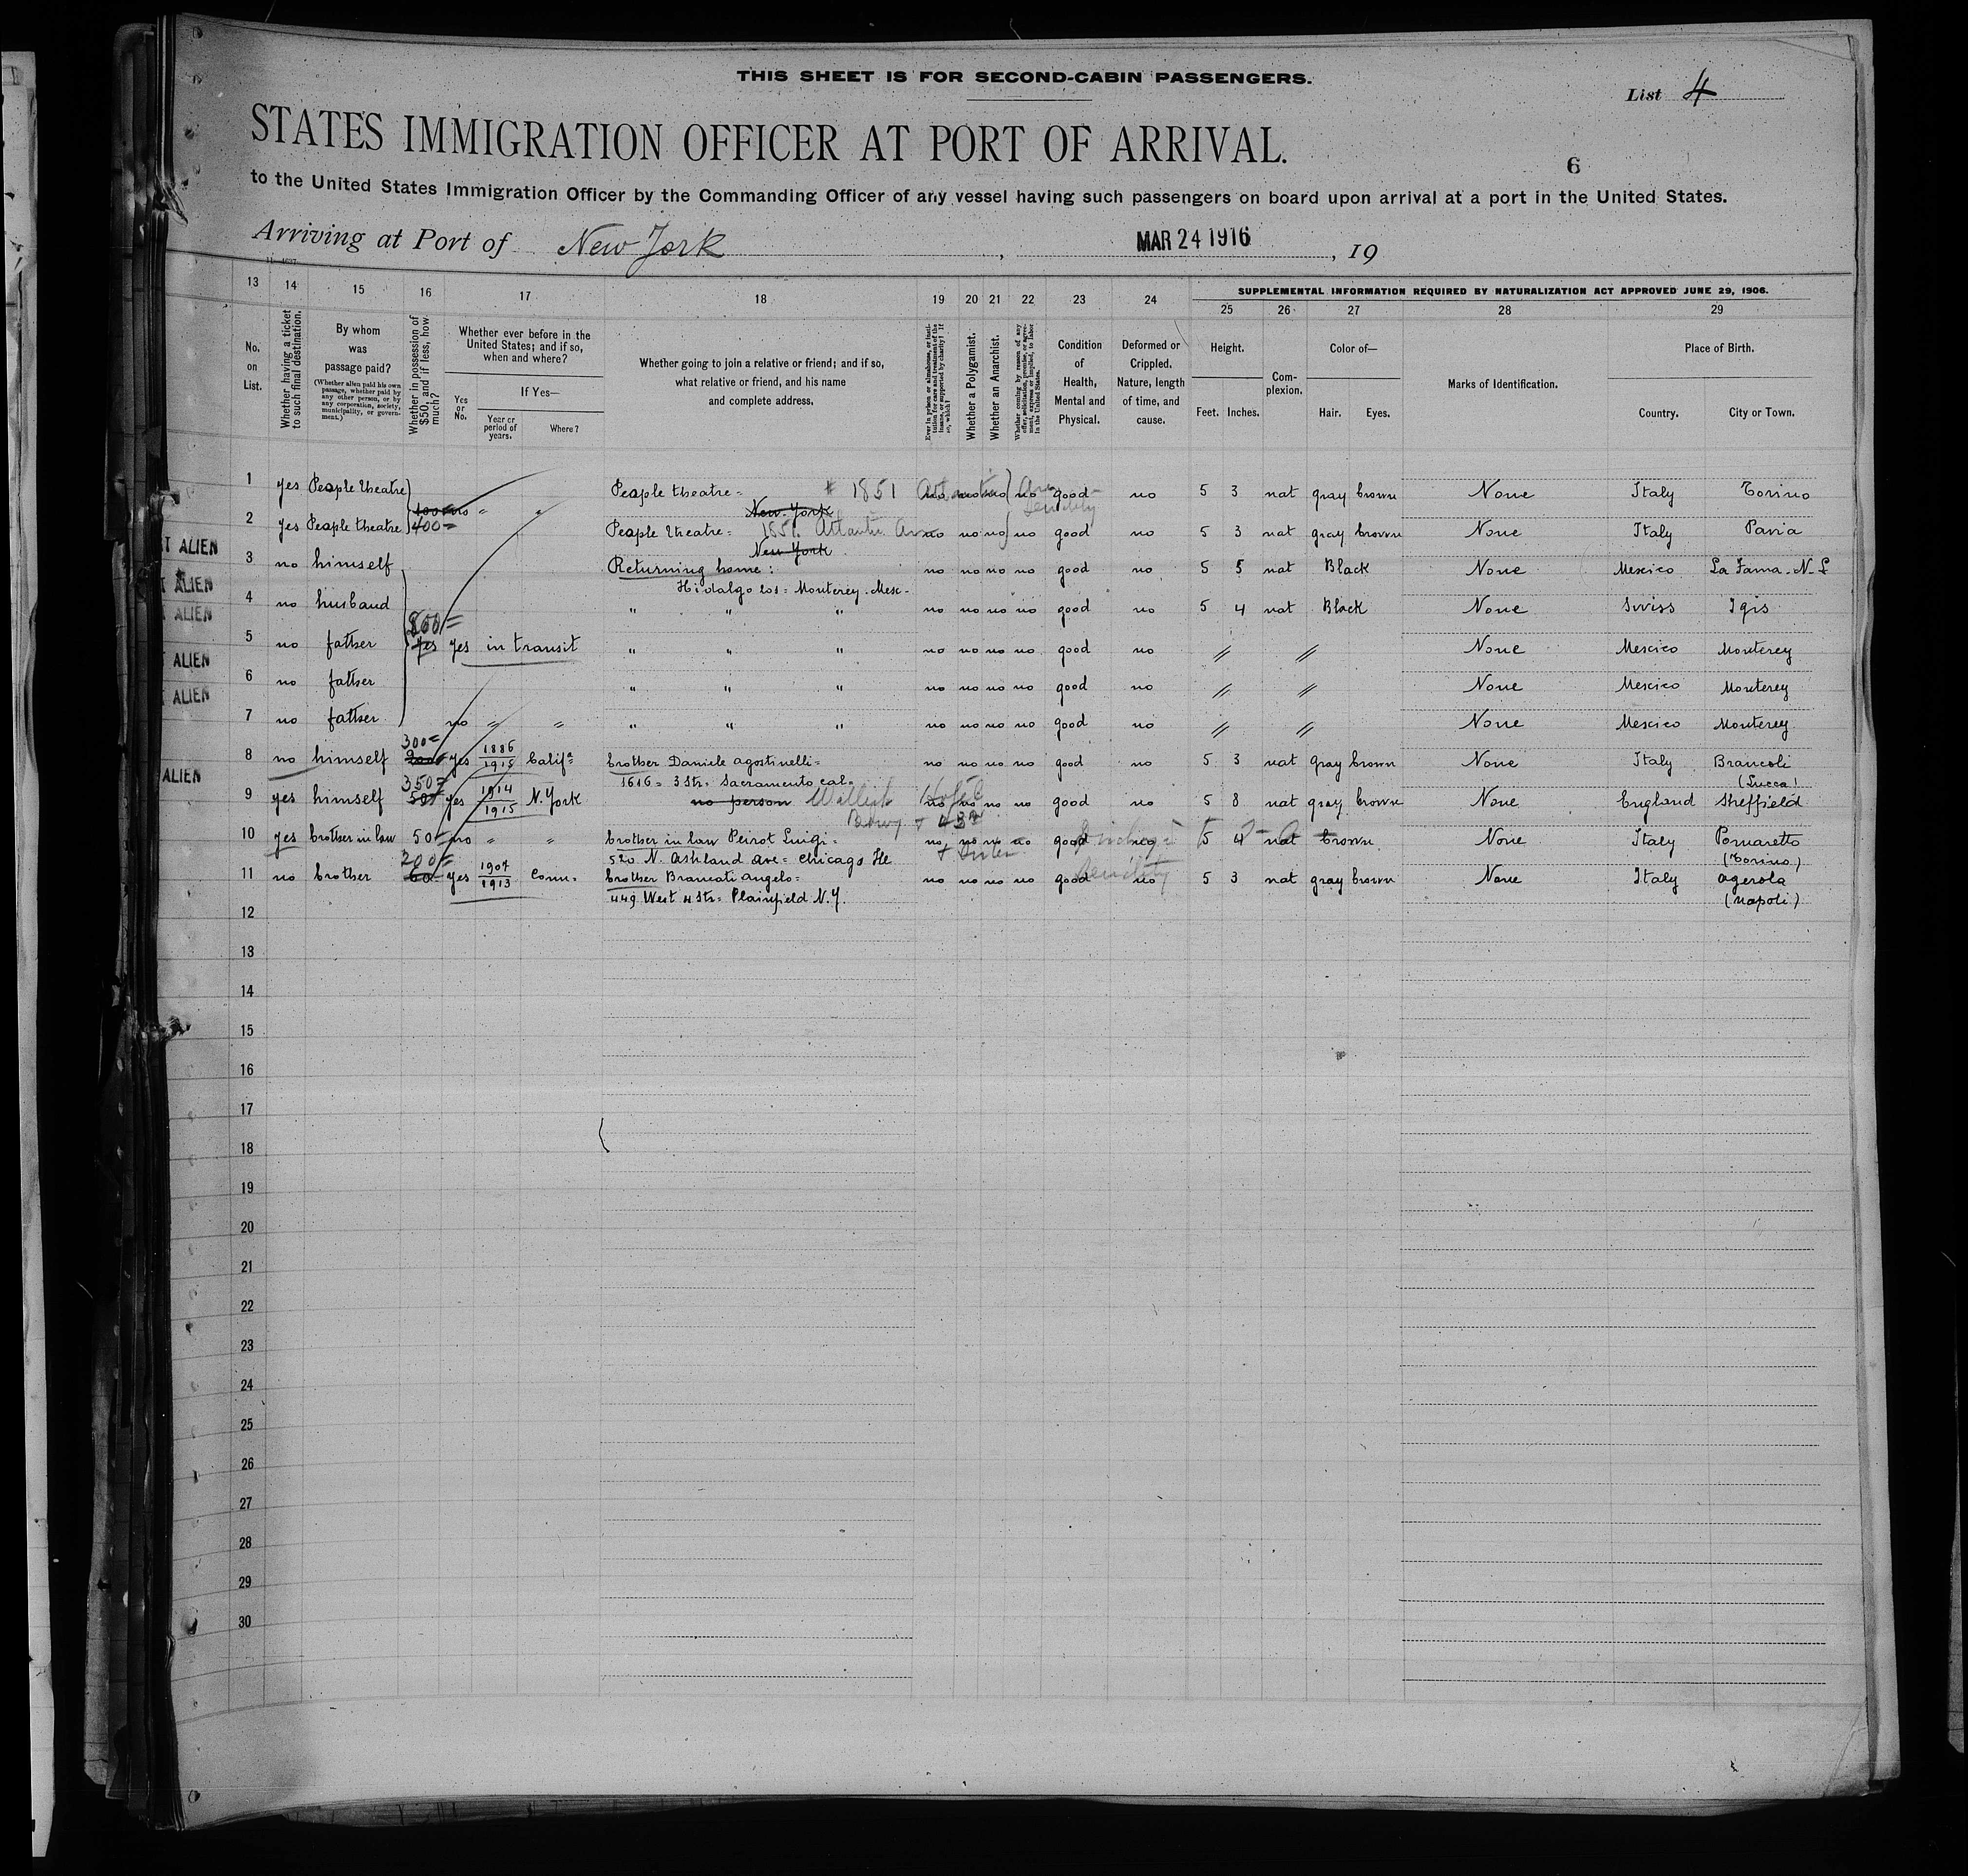 THIS SHEET IS FOR SECOND-CABIN PASSENGERS.
List 4
STATES IMMIGRATION OFFICER AT PORT OF ARRIVAL.
6
to the United States Immigration Officer by the Commanding Officer of any vessel having such passengers on board upon arrival at a port in the United States.
Arriving at Port of New York, MAR 24 1916, 19
13 14 15 16 17 18 19 20 21 22 23 24 SUPPLEMENTAL INFORMATION REQUIRED BY NATURALIZATION ACT APPROVED JUNE 29, 1906.
25 26 27 28 29
No. on List.
Whether having a ticket to such final destination.
By whom was passage paid?
(Whether alien paid his own passage, whether paid by any other person, or by any corporation, society, municipality, or government.)
Whether in possession of $50, and if less, how much?
Whether ever before in the United States; and if so, when and where?
Yes or No.
If Yes—
Year or period of years.
Where?
Whether going to join a relative or friend; and if so, what relative or friend, and his name and complete address.
Ever in prison or almshouse, or institution for care and treatment of the insane, or supported by charity? If so, which?
Whether a Polygamist.
Whether an Anarchist.
Whether coming by reason of any offer, solicitation, promise, or agreement, express or implied, to labor in the United States.
Condition of Health, Mental and Physical.
Deformed or Crippled. Nature, length of time, and cause.
Height.
Feet. Inches.
Complexion.
Color of—
Hair. Eyes.
Marks of Identification.
Place of Birth.
Country. City or Town.
1 yes People theatre 400 no " " People theatre= # 1851 no no no no good no 5 3 nat gray brown None Italy Torino
New York
2 yes People theatre 400= People theatre= 1851 Atlantic Ave no no no no good no 5 3 nat gray brown None Italy Pavia
New York
T ALIEN
3 no himself Returning home: no no no no good no 5 5 nat Black None Mexico La Fama. N. L
Hidalgo 201= Monterey. Mex-
ALIEN
4 no husband " " " no no no no good no 5 4 nat Black None Swiss Igis
ALIEN
800=
5 no father yes yes in transit " " " no no no no good no " " None Mexico Monterey
ALIEN
6 no father " " " no no no no good no " " None Mexico Monterey
ALIEN
7 no father no " " " " " no no no no good no " " None Mexico Monterey
300=
8 no himself yes 1886 1915 Calif.a brother Daniele agostinelli= no no no no good no 5 3 nat gray brown None Italy Brancoli
1616= 3 Str. Sacramento cal= (Lucca)
ALIEN
350
9 yes himself 50 yes 1914 1915 N. York no person Hotel no no no no good no 5 8 nat gray brown None England Sheffield
10 yes brother in law 50= no " " brother in law Peirot Luigi= no no no no good no 5 4 nat brown None Italy Pomaretto
520 N. Ashland ave= Chicago Ill (Torino)
200=
11 no brother 60 yes 1907 1913 Conn= brother Brancati angelo= no no no no good no 5 3 nat gray brown None Italy agerola
449 West 4 Str= Plainfield N.Y. (Napoli)
12
13
14
15
16
17
18
19
20
21
22
23
24
25
26
27
28
29
30